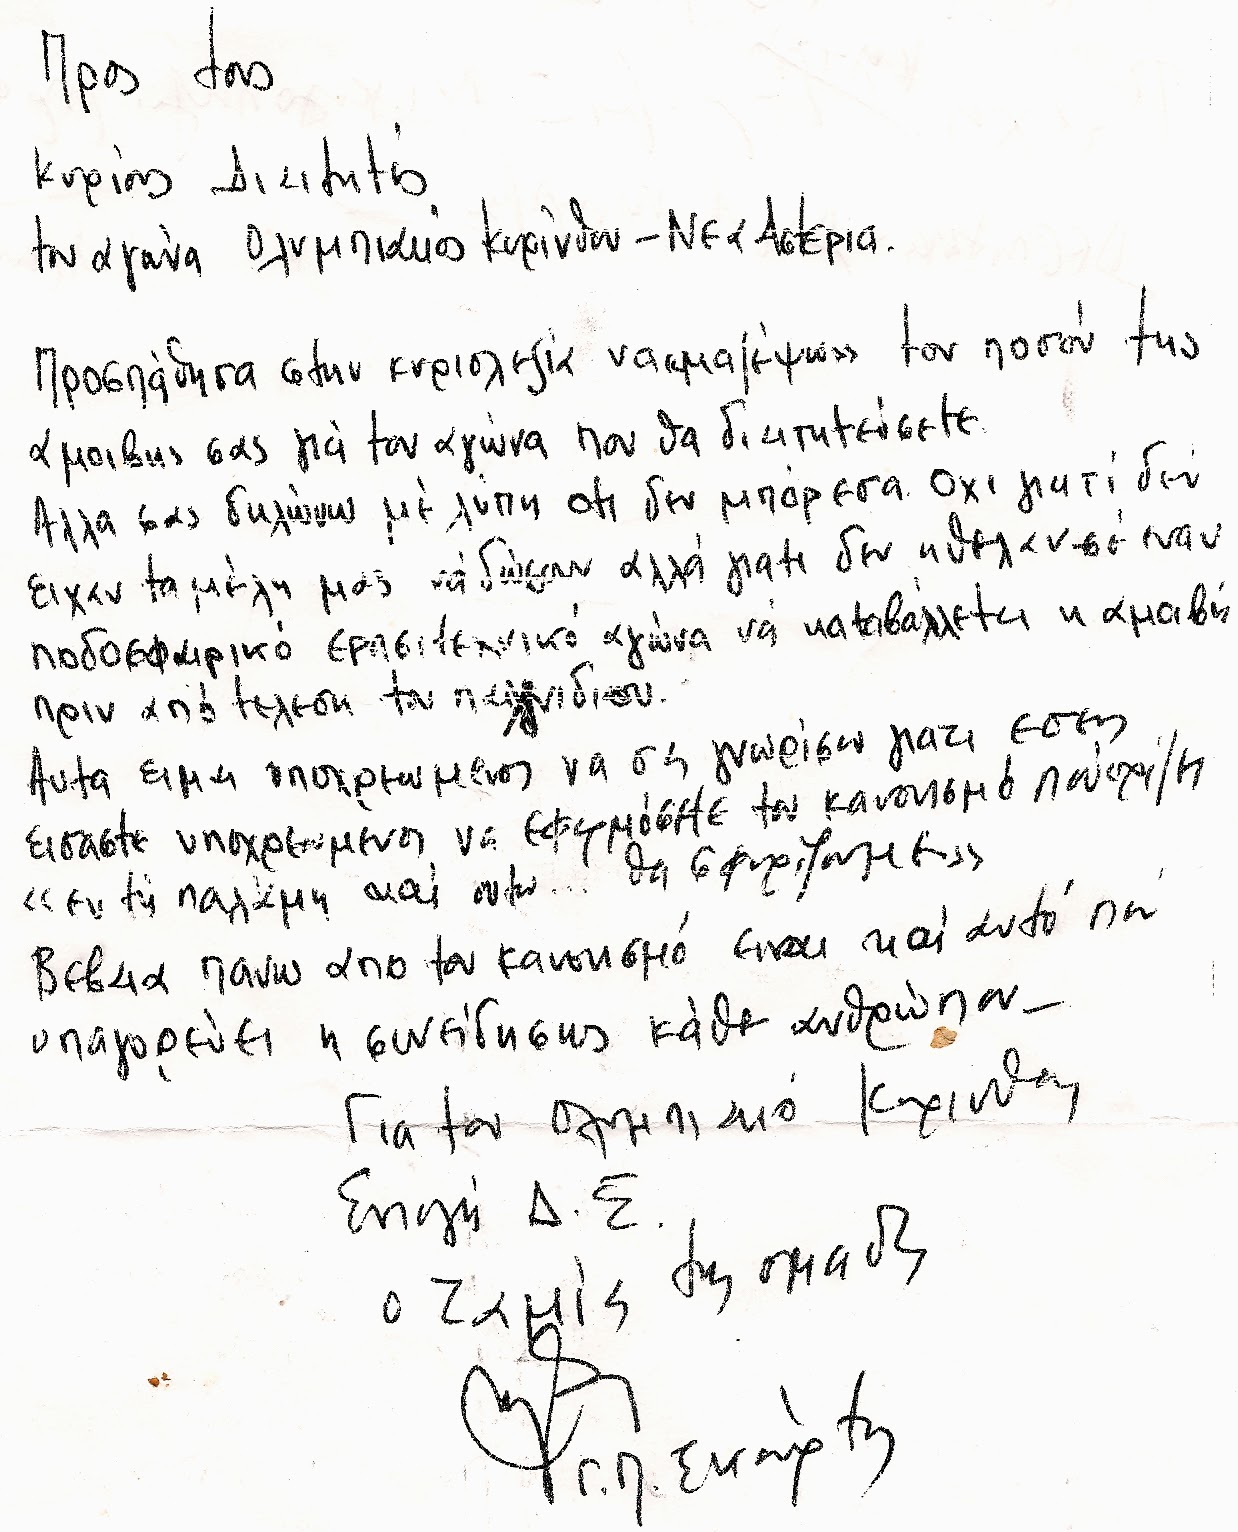 Προς τους
Κυρίους Διαιτητές
του αγώνα Ολυμπιακός Κυρίνθου – Νεα Αστερια.
Προσπάθησα στην κυριολεξία να «μαζέψω» τον ποσόν της
αμοιβης σας γιά τον αγώνα που θα διαιτητεύσετε.
Αλλα σας δηλώνω μέ λύπη οτι δεν μπόρεσα. Οχι γιατί δέν
ειχαν τα μέλη μας νά δώσουν αλλά γιατι δεν ηθελαν σέ εναν
ποδοσφαιρικό ερασιτεχνικό αγώνα νά καταβάλλεται η αμοιβής
πριν από τελεση του παιχνιδιου.
Αυτα ειμαι υποχρεωμενος να σάς γνωρίσω γιατι εσεις
εισαστε υποχρεωμένοι να εφαρμόσετε τον κανονισμό πού ορίζει
«εν τή παλάμη και ουτω... θα σφυρίζουμε»
Βεβαια πανω απο τον κανονισμό ειναι καί αυτό πού
υπαγορεύει η συνείδησης κάθε ανθρώπου –
Για τον Ολυμπιακό Κυρινθου
Εντολή Δ.Σ.
ο Ταμίας της ομαδας
Γ.Π. Σκούρτης